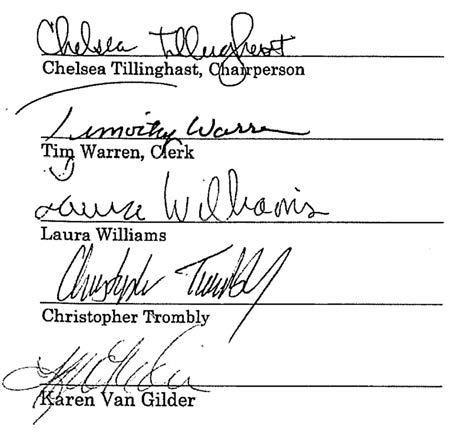 Chelsea Tillinghast
Chelsea Tillinghast, Chairperson
Timothy Warren
Tim Warren, Clerk
Laura Williams
Laura Williams
Christopher Trombly
Christopher Trombly
Karen Van Gilder